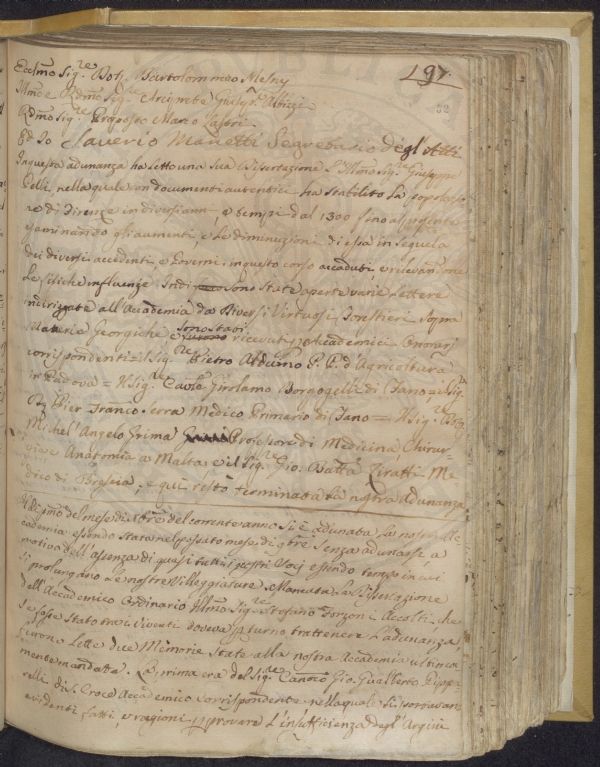 197.
52
Eccmo Sigre Dott. Bartolommeo Mesny
Illmo e Rdmo Sigre Arciprete Giusppe Albizi
Rdmo Sigre Proposto Marco Lastri
Ed Io Saverio Manetti Segretario degl'Atti
In questa adunanza ha letto una sua Dissertazione L'Illmo Sigre Giuseppe
Pelli, nella quale con documenti autentici ha stabilito La popolazio-
ne di Firenze in diversi anni, e tempi dal 1300 fino al presente
esaminando gli aumenti, e Le diminuzioni di essa in sequela
dei diversi accidenti, e Governi, in questo corso accaduti, e rilevandone
Le fisiche influenze. Indi sono state aperte varie Lettere
indirizzate all'Accademia da Diversi Virtuosi Forestieri sopra
Materie Georgiche e sono stati ricevuti p Accademici Onorari
corrispondenti = il Sigre Pietro Arduino P. P. d'Agricoltura
in Padova = Il Sigre Carlo Girolamo Borgogelli di Fano = il Sigre
Dr Pier Franco. Serra Medico Primario di Fano = Il Sigre Dottr
Michel'Angelo Grima Professore di Medicina, Chirur-
gia e Anatomia a Malta, e il Sigre Gio. Batta Ziratti Me-
dico di Brescia, e qui restò terminata la nostra Adunanza
Il dì pmo del mese di Xbre del corrente anno si è adunata La nostra Ac-
cademia essendo stato nel passato mese di 9bre senza adunarsi, a
motivo dell'assenza di quasi tutti i nostri Socj essendo tempo in cui
si prolungano Le nostre Villeggiature. Mancata La Dissertazione
dell'Accademico Ordinario Illmo Sigre Stefano Forzoni Accolti, che
se fosse stato tra i viventi doveva p turno trattenere L'adunanza,
furono Lette due Memorie state alla nostra Accademia ultima
mente mandate. La prima era del Sigre Canoco Gio. Gualberto
di S. Croce Accademico corrispondente nella quale si
evidenti fatti, e ragioni p provare L'insufficienza degl'Argini